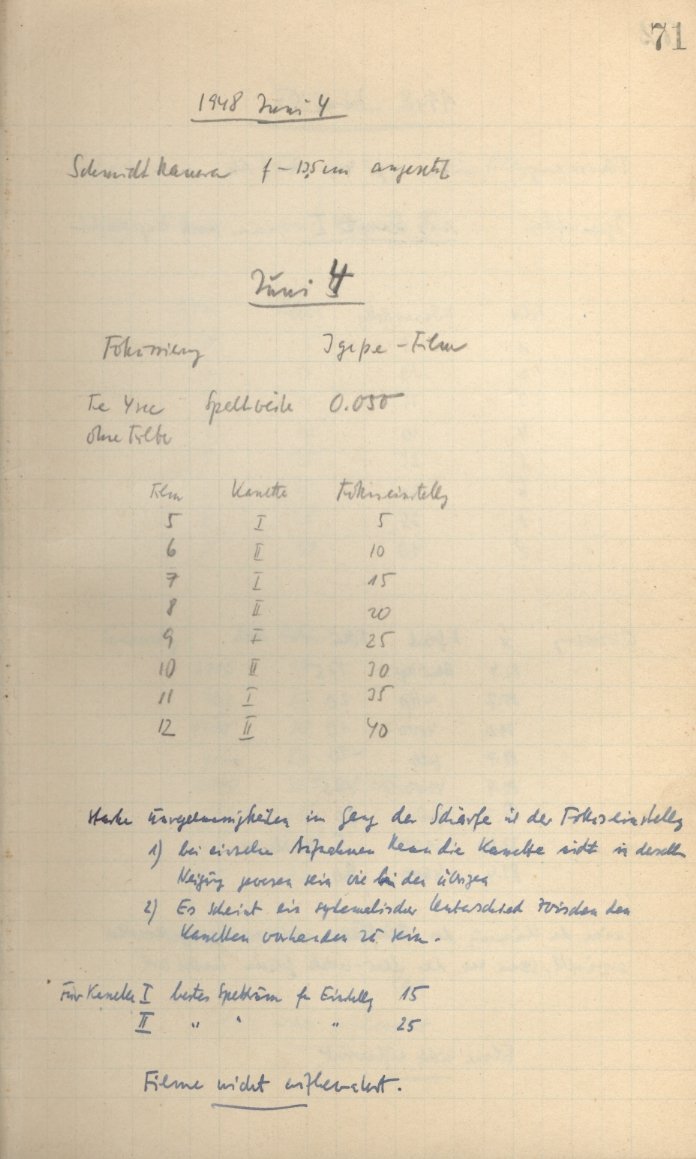 71
1948 Juni 4
Schmidt Kamera f = 13,5 cm angesetzt
Juni 4
Fokussierung Igepe-Film
Te 4 sec Spaltweite 0.050
ohne Filter
Film Kasette Fokuseinstellg
5 I 5
6 II 10
7 I 15
8 II 20
9 I 25
10 II 30
11 I 35
12 II 40
Starke Unregelmässigkeiten im Gang der Schärfe mit der Fokuseinstellg
1) bei einzelnen Aufnahmen kann die Kasette nicht in derselben
Neigung gewesen sein wie bei den übrigen
2) Es scheint ein systematischer Unterschied zwischen den
Kasetten vorhanden zu sein.
Für Kasette I bestes Spektrum für Einstellg 15
II " " " 25
Filme nicht aufbewahrt.